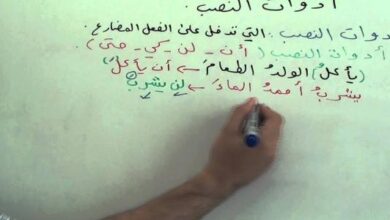 أدوات النصب.
أدوات النصب: التي تدخل على الفعل المضارع.
أدوات النصب (أن - لن - كي - حتى).
(يأكلُ) الولدُ الطعامَ ← أن يأكلَ
يشربُ أحمدُ الماءَ ← لن يشربَ